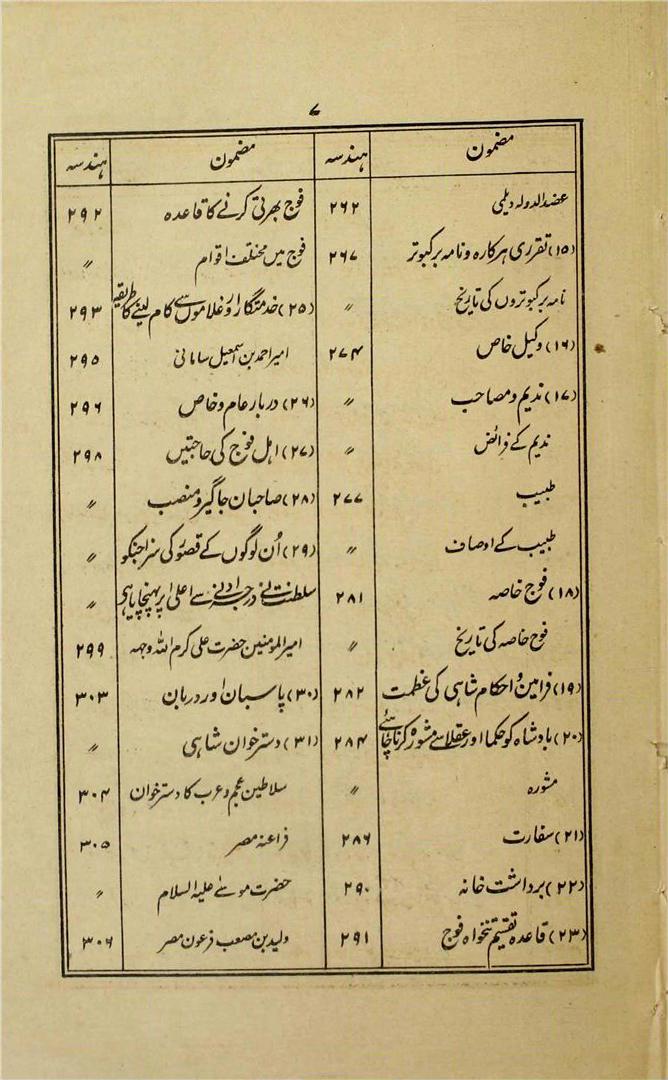 ۷
مضمون ہندسہ مضمون ہندسہ
عضدالدولہ دیلمی ۲۶۲
(۱۵) تقرری ہرکارہ و نامہ بر کبوتر ۲۶۷
نامہ بر کبوتروں کی تاریخ 〃
(۱۶) وکیل خاص ۲۷۴
(۱۷) ندیم و مصاحب 〃
ندیم کے فرائض 〃
طبیب ۲۷۷
طبیب کے اوصاف 〃
(۱۸) فوج خاصہ ۲۸۱
فوج خاصہ کی تاریخ 〃
(۱۹) فرامین و احکام شاہی کی عظمت ۲۸۲
(۲۰) بادشاہ کو حکما اور عقلا سے مشورہ کرنا چاہئے ۲۸۴
مشورہ 〃
(۲۱) سفارت ۲۸۶
(۲۲) برداشت خانہ ۲۹۰
(۲۳) قاعدہ تقسیم تنخواہ فوج ۲۹۱
فوج بھرتی کرنے کا قاعدہ ۲۹۲
فوج میں مختلف اقوام 〃
(۲۵) خدمتگار اور غلاموں سے کام لینے کا طریقہ ۲۹۳
امیر احمد بن اسمعیل سامانی ۲۹۵
(۲۶) دربار عام و خاص ۲۹۶
(۲۷) اہل فوج کی حاجتیں ۲۹۸
(۲۸) صاحبان جاگیر و منصب 〃
(۲۹) اُن لوگوں کے قصور کی سزا جنکو 〃
سلطنت نے درجہ ادنیٰ سے اعلیٰ پر پہنچایا ہی 〃
امیرالمومنین حضرت علی کرم اللہ وجہہ ۲۹۹
(۳۰) پاسبان اور دربان ۳۰۳
(۳۱) دسترخوان شاہی 〃
سلاطین عجم و عرب کا دسترخوان ۳۰۴
فراعنہ مصر ۳۰۵
حضرت موسےٰ علیہ السلام 〃
ولید بن مصعب فرعون مصر ۳۰۶